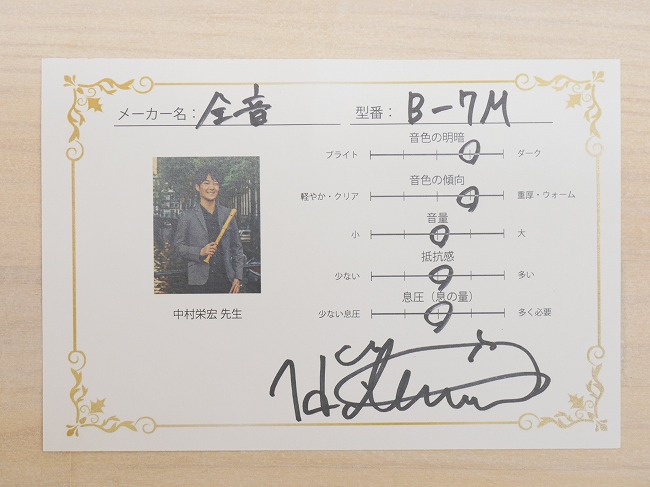 メーカー名：全音
型番：B-7M
音色の明暗
ブライト ダーク
音色の傾向
軽やか・クリア 重厚・ウォーム
音量
小 大
抵抗感
少ない 多い
息圧（息の量）
少ない息圧 多く必要
中村栄宏 先生